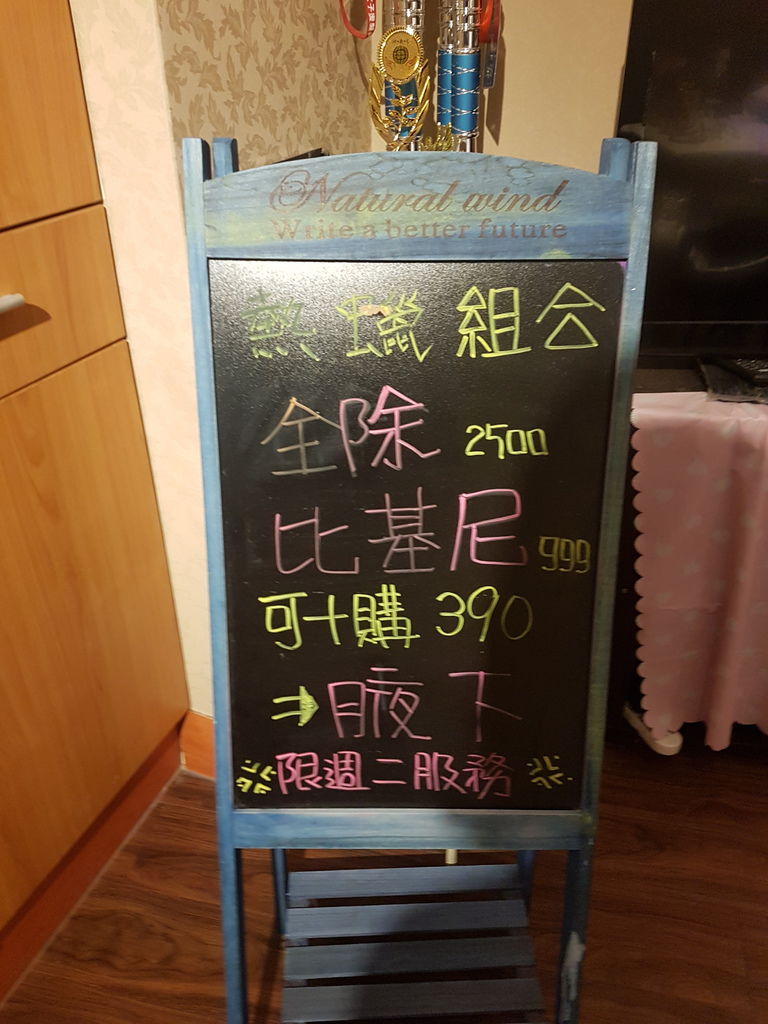 Natural wind
Write a better future
熱蠟組合
全除 2500
比基尼 999
可十購 390
⇒腋下
限週二服務